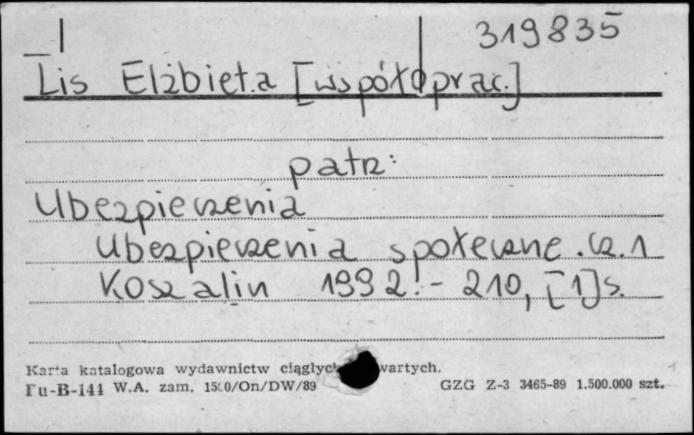 319835
Lis Elżbieta [współprac.]
patrz:
Ubezpieczenia
Ubezpieczenia społeczne. Cz. 1
Koszalin 1992. - 210, [1] s.
Karta katalogowa wydawnictw ciągłych wartych.
Pu-B-144 W.A. zam. 1500/On/DW/89 GZG Z-3 3465-89 1.500.000 szt.